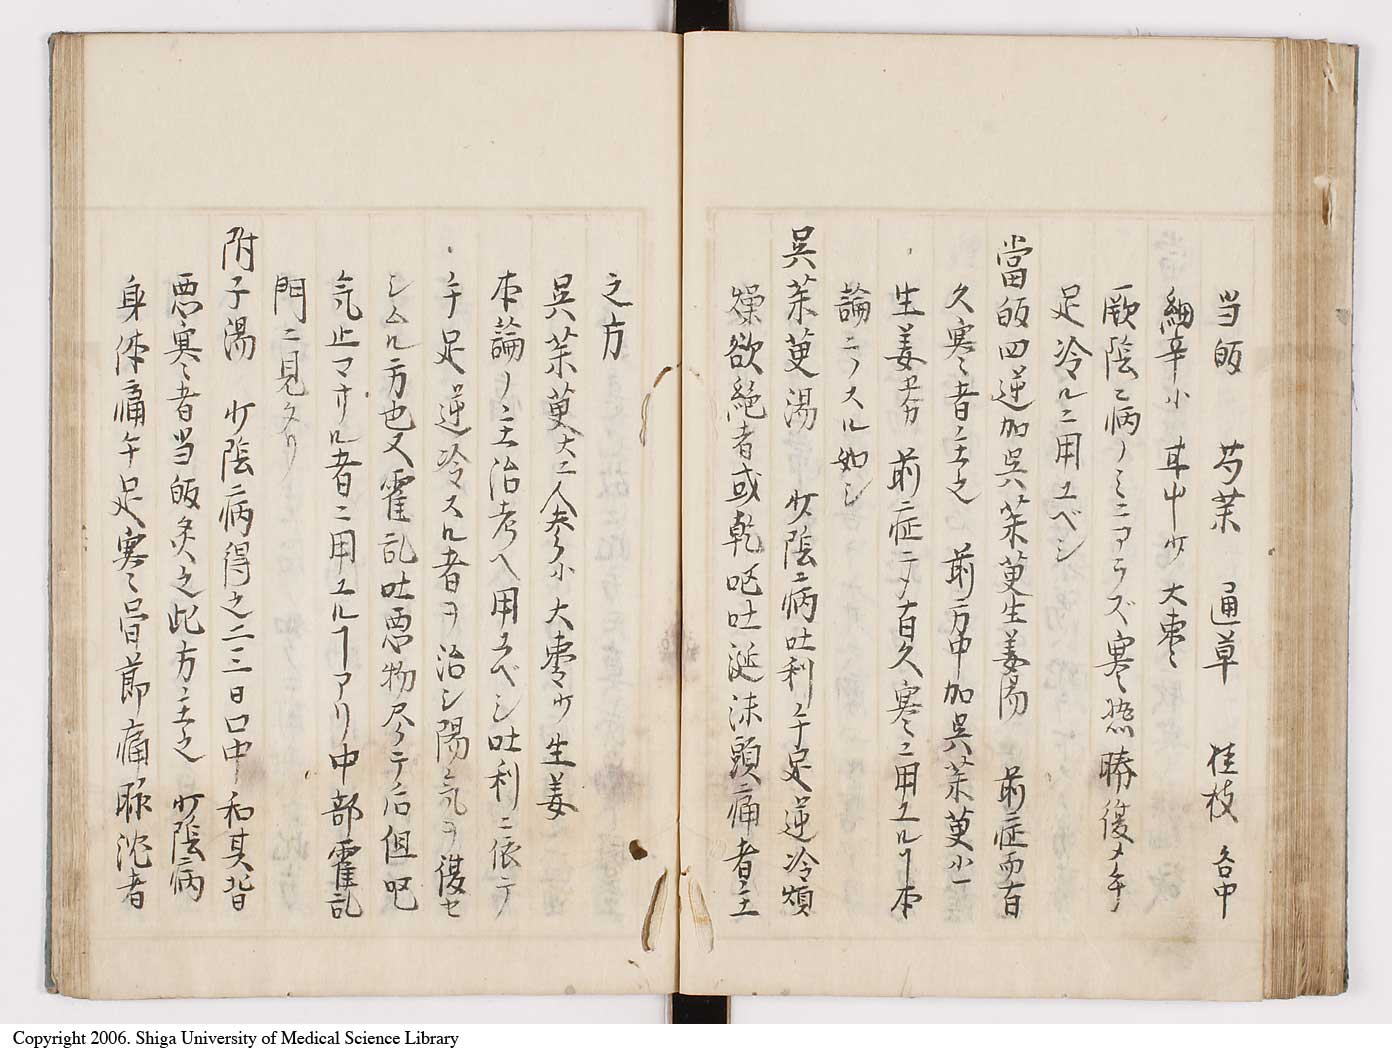 当皈 芍薬 通草 桂枝 各中
細辛小 甘中少 大棗〻
厥陰ニ病ノミニアラズ寒〻熱勝復メ手
足冷ルニ用ユベシ
當皈四逆加呉茱萸生姜湯 前症而有
久寒〻者主之 前方中加呉茱萸小一
生姜 前症ニメ有久寒〻ニ用ユルヿ本
論ニノスル如シ
呉茱萸湯 少陰ニ病吐利手足逆冷煩
燥欲絶者或乾呕吐涎沫頭痛者主
之方
呉茱萸大二人参小大棗少生姜
本論ノ主治考ヘ用ユベシ吐利ニ依テ
手足逆冷スル者ヲ治シ陽気ヲ復セ
シムル方也又霍乱吐悪物尽テ后但呕
気止マザル者ニ用ユルヿアリ中部霍乱
門ニ見タリ
附子湯 少陰病得之二三日口中和其背
悪寒〻者当皈灸之此方主之 少陰病
身体痛手足寒〻骨節痛脉沈者
Copyright 2006. Shiga University of Medical Science Library